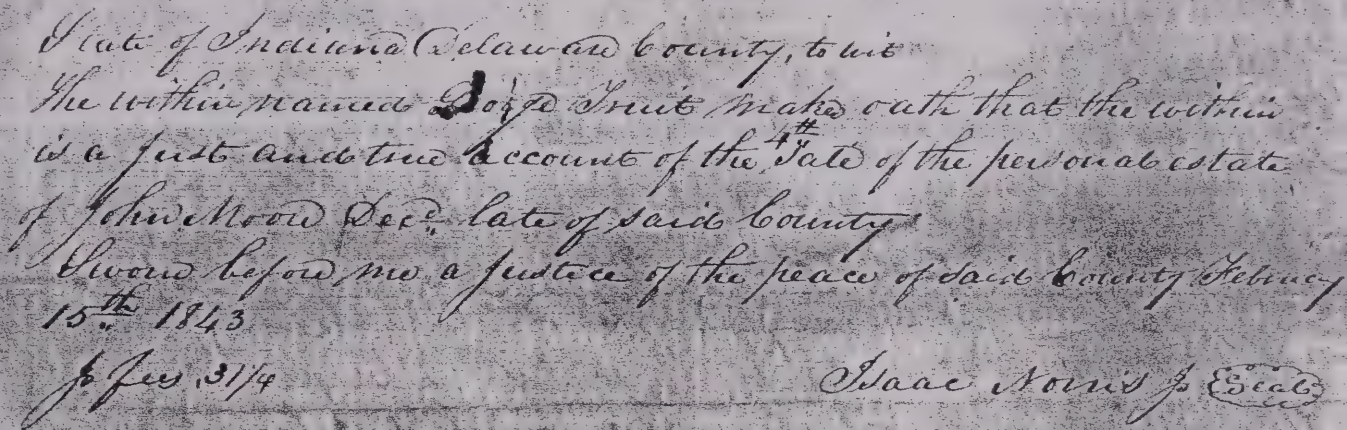 State of Indiana Delaware County, to wit
The within named George Truit make oath that the within
is a just and true account of the 4th Sale of the personal estate
of John Moore Decd. late of said County
Sworn before me a Justice of the peace of said County Februey
15th 1843
Js fees .31/4
Isaac Norris Js (Seal)